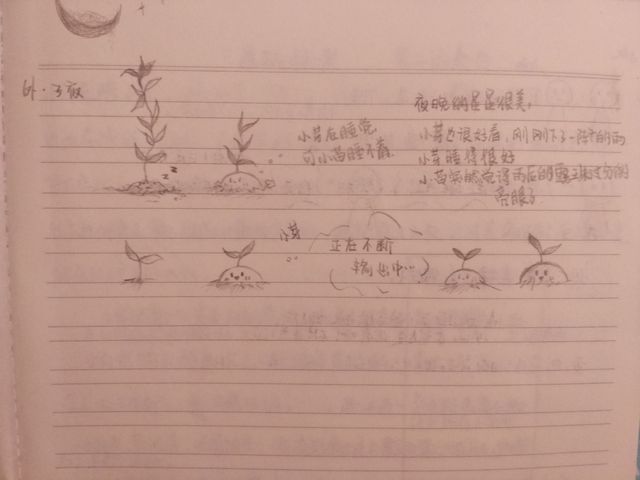 夜晚的星星很美,
小芽在睡觉
可小苗睡不着.
小芽也很好看,刚刚下了一阵的雨
小芽睡得很好
小苗突然觉得雨后的
亮眼了
小芽
正在不断
输出中…